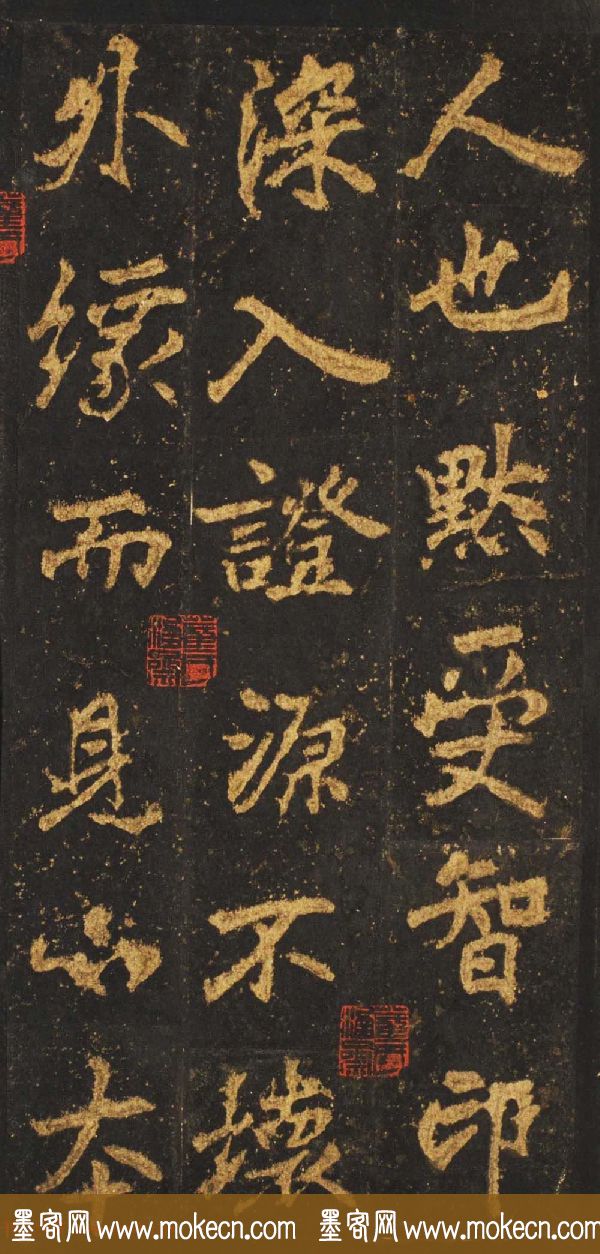 人也默受智印
深入證源不壞
外緣而見心本
墨客网 www.mokecn.com 墨客网 www.mokecn.com